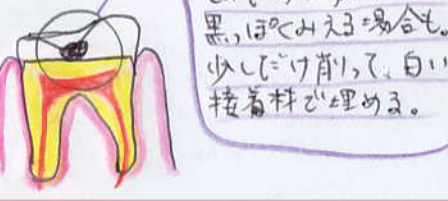 黒っぽくみえる場合も。
少しだけ削って、白い
接着材で埋める。